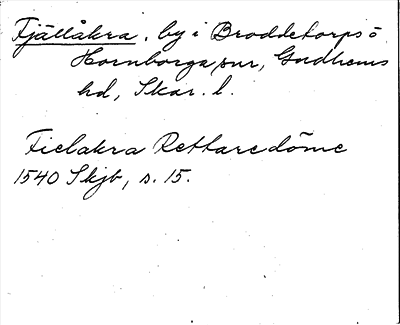 Fjällåkra, by i Broddetorps o
Hornborga snr, Gudhems
hd, Skar. l.
Fielakra Rettaredöme
1540 Skjb, s. 15.